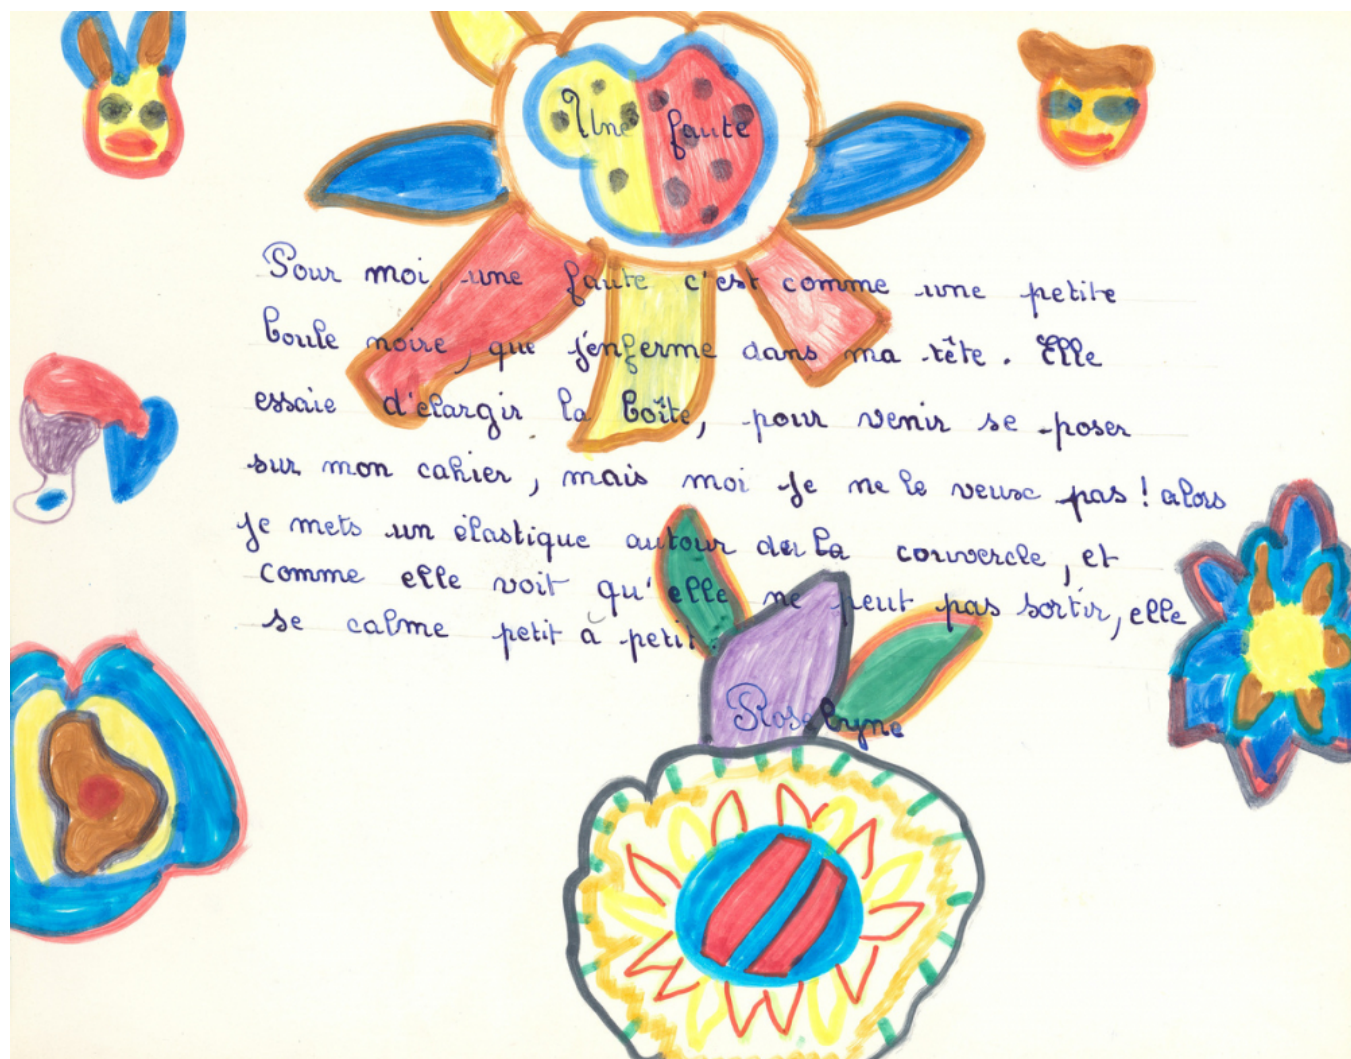 Une faute
Pour moi, une faute c'est comme une petite
boule noire, que j'enferme dans ma tête. Elle
essaie d'elargir la boîte, pour venir se poser
sur mon cahier, mais moi je ne le veux pas ! alors
je mets un élastique autour de la couvercle, et
comme elle voit qu'elle ne peut pas sortir, elle
se calme petit à petit.
Roselyne